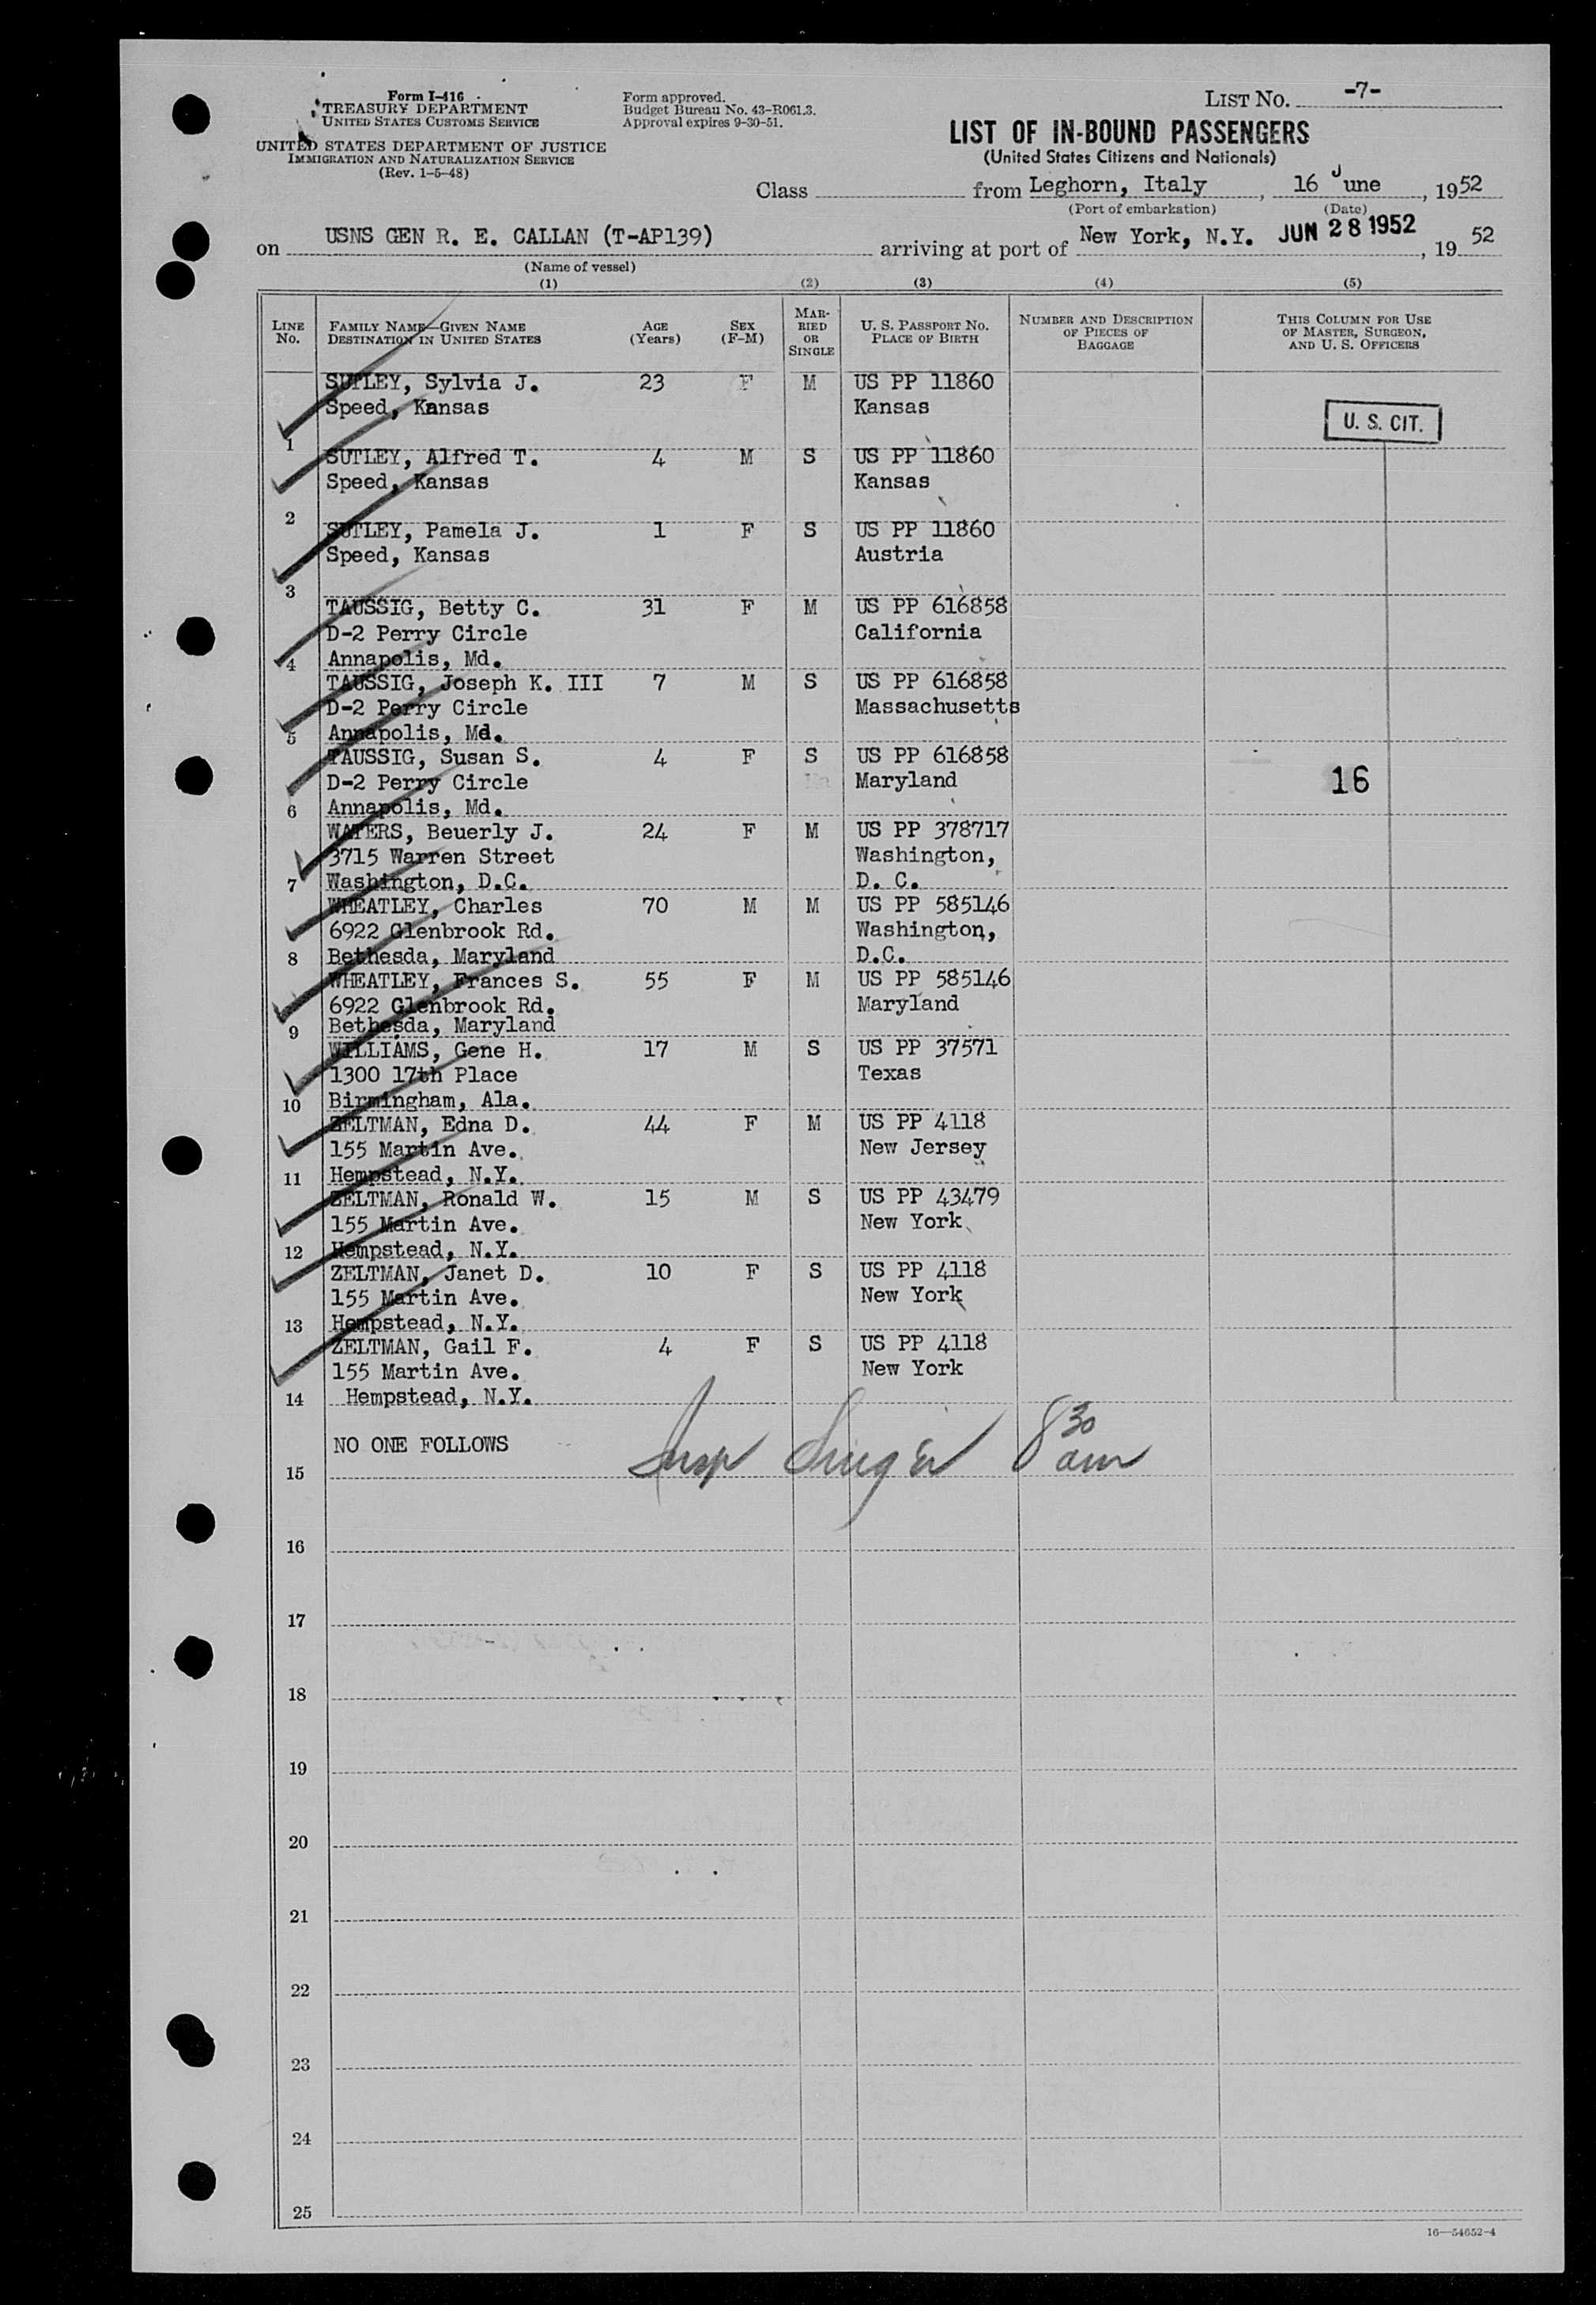 Form I-416
TREASURY DEPARTMENT
UNITED STATES CUSTOMS SERVICE
UNITED STATES DEPARTMENT OF JUSTICE
IMMIGRATION AND NATURALIZATION SERVICE
(Rev. 1-5-48)
Form approved.
Budget Bureau No. 43-R061.3.
Approval expires 9-30-51.
LIST No. -7-
LIST OF IN-BOUND PASSENGERS
(United States Citizens and Nationals)
Class from Leghorn, Italy, 16 June, 1952
(Port of embarkation) (Date)
on USNS GEN R. E. CALLAN (T-AP139) arriving at port of New York, N.Y. JUN 28 1952, 19 52
(Name of vessel)
(1) (2) (3) (4) (5)
LINE No.
FAMILY NAME—GIVEN NAME
DESTINATION IN UNITED STATES
AGE
(Years)
SEX
(F-M)
MAR-
RIED
OR
SINGLE
U. S. PASSPORT NO.
PLACE OF BIRTH
NUMBER AND DESCRIPTION
OF PIECES OF
BAGGAGE
THIS COLUMN FOR USE
OF MASTER, SURGEON,
AND U. S. OFFICERS
SUTLEY, Sylvia J. 23 F M US PP 11860
Speed, Kansas Kansas
U. S. CIT.
1
SUTLEY, Alfred T. 4 M S US PP 11860
Speed, Kansas Kansas
2
SUTLEY, Pamela J. 1 F S US PP 11860
Speed, Kansas Austria
3
TAUSSIG, Betty C. 31 F M US PP 616858
D-2 Perry Circle California
4 Annapolis, Md.
TAUSSIG, Joseph K. III 7 M S US PP 616858
D-2 Perry Circle Massachusetts
5 Annapolis, Md.
TAUSSIG, Susan S. 4 F S US PP 616858
D-2 Perry Circle Maryland 16
6 Annapolis, Md.
WATERS, Beuerly J. 24 F M US PP 378717
3715 Warren Street Washington,
7 Washington, D.C. D. C.
WHEATLEY, Charles 70 M M US PP 585146
6922 Glenbrook Rd. Washington,
8 Bethesda, Maryland D.C.
WHEATLEY, Frances S. 55 F M US PP 585146
6922 Glenbrook Rd. Maryland
9 Bethesda, Maryland
WILLIAMS, Gene H. 17 M S US PP 37571
1300 17th Place Texas
10 Birmingham, Ala.
ZELTMAN, Edna D. 44 F M US PP 4118
155 Martin Ave. New Jersey
11 Hempstead, N.Y.
ZELTMAN, Ronald W. 15 M S US PP 43479
155 Martin Ave. New York
12 Hempstead, N.Y.
ZELTMAN, Janet D. 10 F S US PP 4118
155 Martin Ave. New York
13 Hempstead, N.Y.
ZELTMAN, Gail F. 4 F S US PP 4118
155 Martin Ave. New York
14 Hempstead, N.Y.
NO ONE FOLLOWS Insp Singer 8 30 am
15
16
17
18
19
20
21
22
23
24
25
16—54652-4